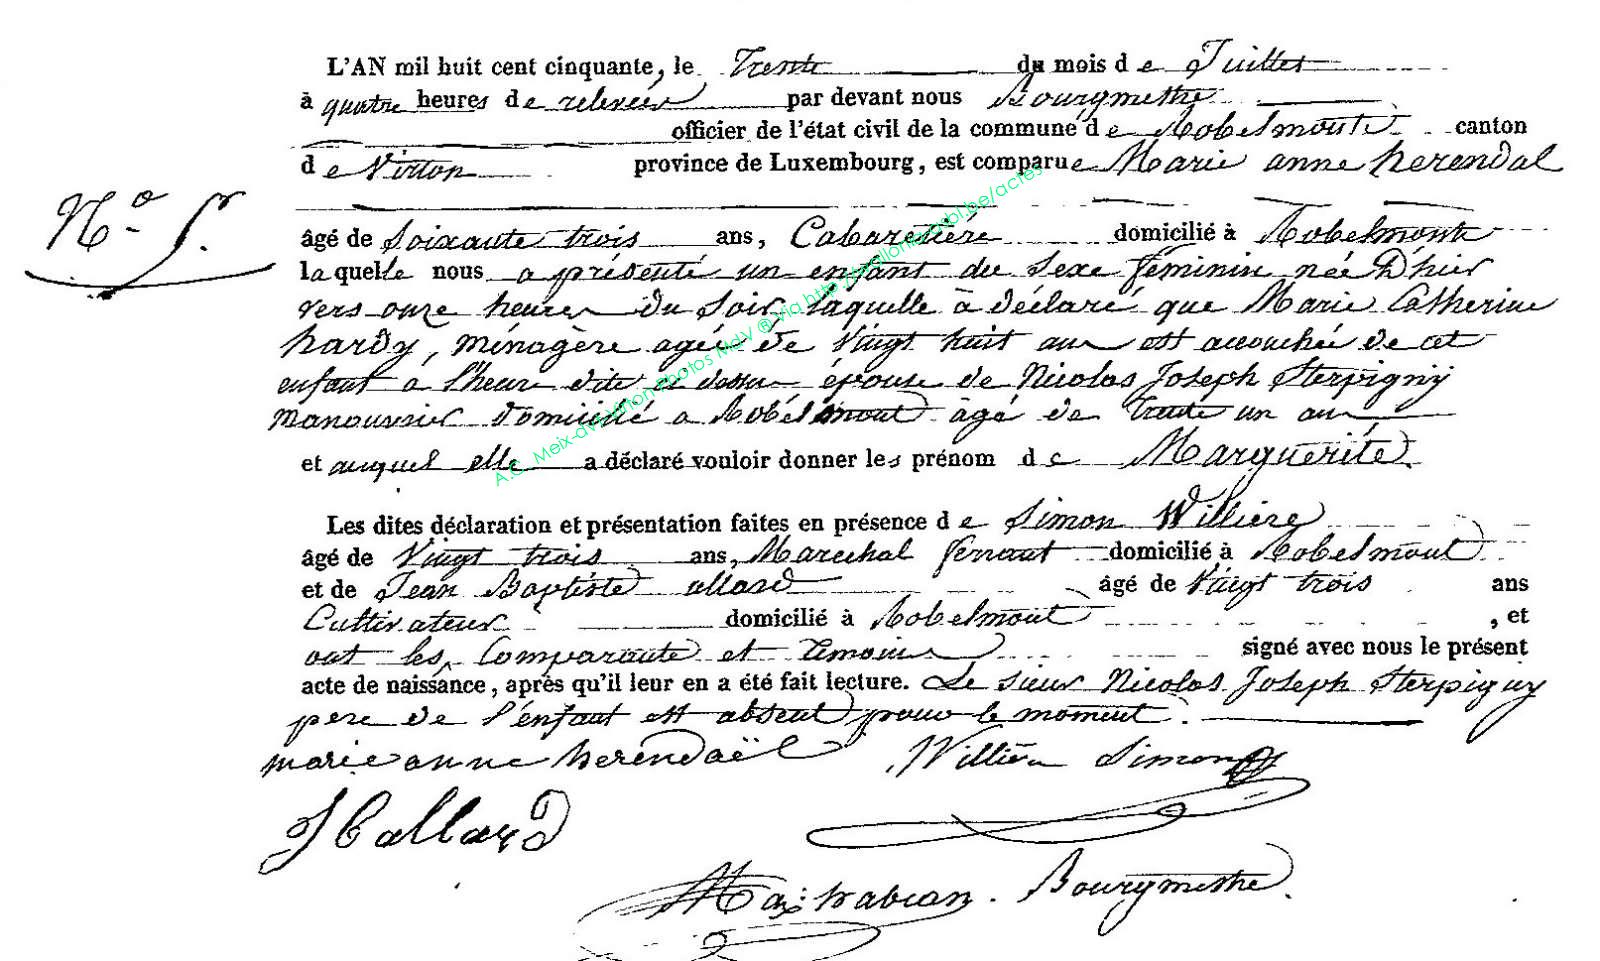 L'AN mil huit cent cinquante, le Trente du mois de Juillet
à quatre heures de relevée par devant nous Bourgmestre
officier de l'état civil de la commune de Robelmont canton
de Virton province de Luxembourg, est comparue Marie anne herendal
N° 5.
âgé de Soixante trois ans, Cabaretière domicilié à Robelmont
laquelle nous a présenté un enfant du sexe féminin née D'hier
vers onze heures du soir, laquelle à déclaré que Marie Catherine
hardy, ménagère agée de vingt huit ans est accouchée de cet
enfant à l'heure dite ci dessus épouse de Nicolas Joseph Sterpigny
manouvrier domicilié a Robelmont âgé de Trente un ans
et auquel elle a déclaré vouloir donner les prénom de Marguerite.
Les dites déclaration et présentation faites en présence de Simon Willière
âgé de Vingt trois ans, Marechal ferrant domicilié à Robelmont
et de Jean Baptiste allard âgé de Vingt trois ans
Cultivateur domicilié à Robelmont, et
ont les Comparante et Temoins signé avec nous le présent
acte de naissance, après qu'il leur en a été fait lecture. Le sieur Nicolas Joseph Sterpigny
pere de l'enfant est absent pour le moment.
marie anne herendaël Willière Simon
J B allard
Bourgmestre.
A.C. Meix-dvt-Virton Photos MdV ® via http://wallonia-asbl.be/actes